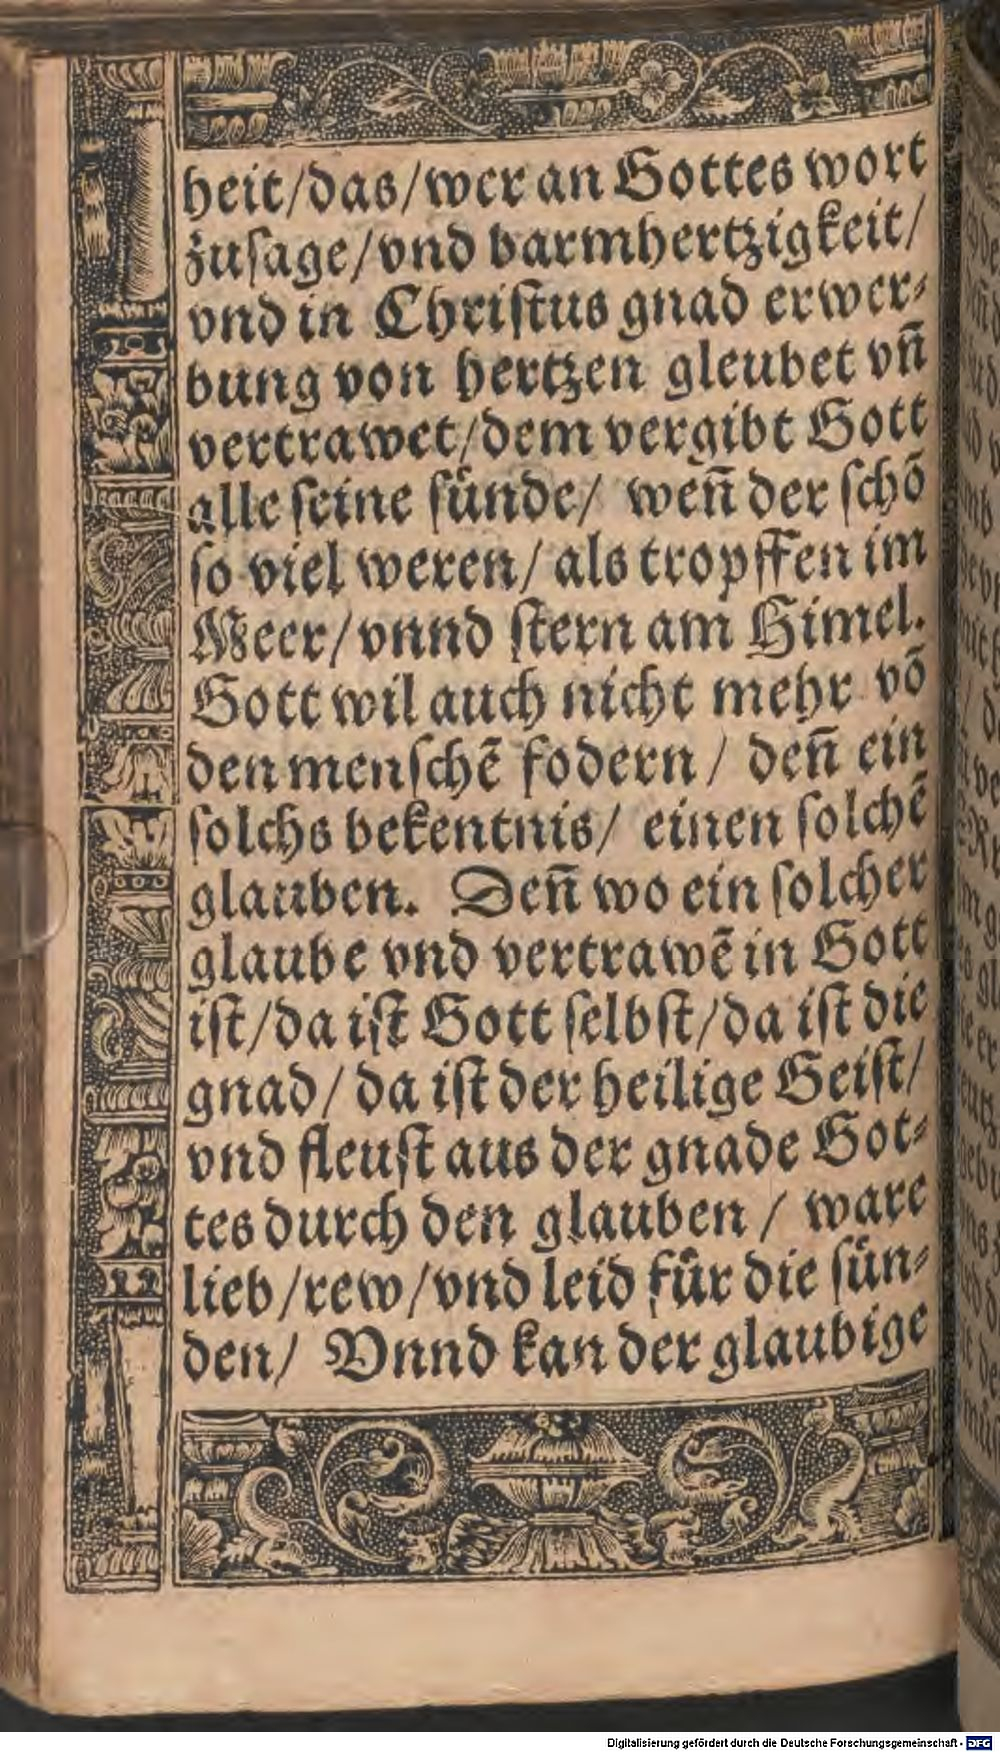 heit/das/wer an Gottes wort
zusage/vnd barmhertzigkeit/
vnd in Christus gnad erwer⸗
bung von hertzen gleubet vn̄
vertrawet/dem vergibt Gott
alle seine sünde/ wen̄ der schō
so viel weren/ als tropffen im
Meer/vnnd stern am Himel.
Gott wil auch nicht mehr vō
den menschē fodern/ den̄ ein
solchs bekentnis/ einen solchē
glauben. Den̄ wo ein solcher
glaube vnd vertrawē in Gott
ist/da ist Gott selbst/da ist die
gnad/ da ist der heilige Geist/
vnd fleust aus der gnade Got⸗
tes durch den glauben/ ware
lieb/rew/vnd leid für die sün⸗
den/ Vnnd kan der glaubige
Digitalisierung gefördert durch die Deutsche Forschungsgemeinschaft - DFG